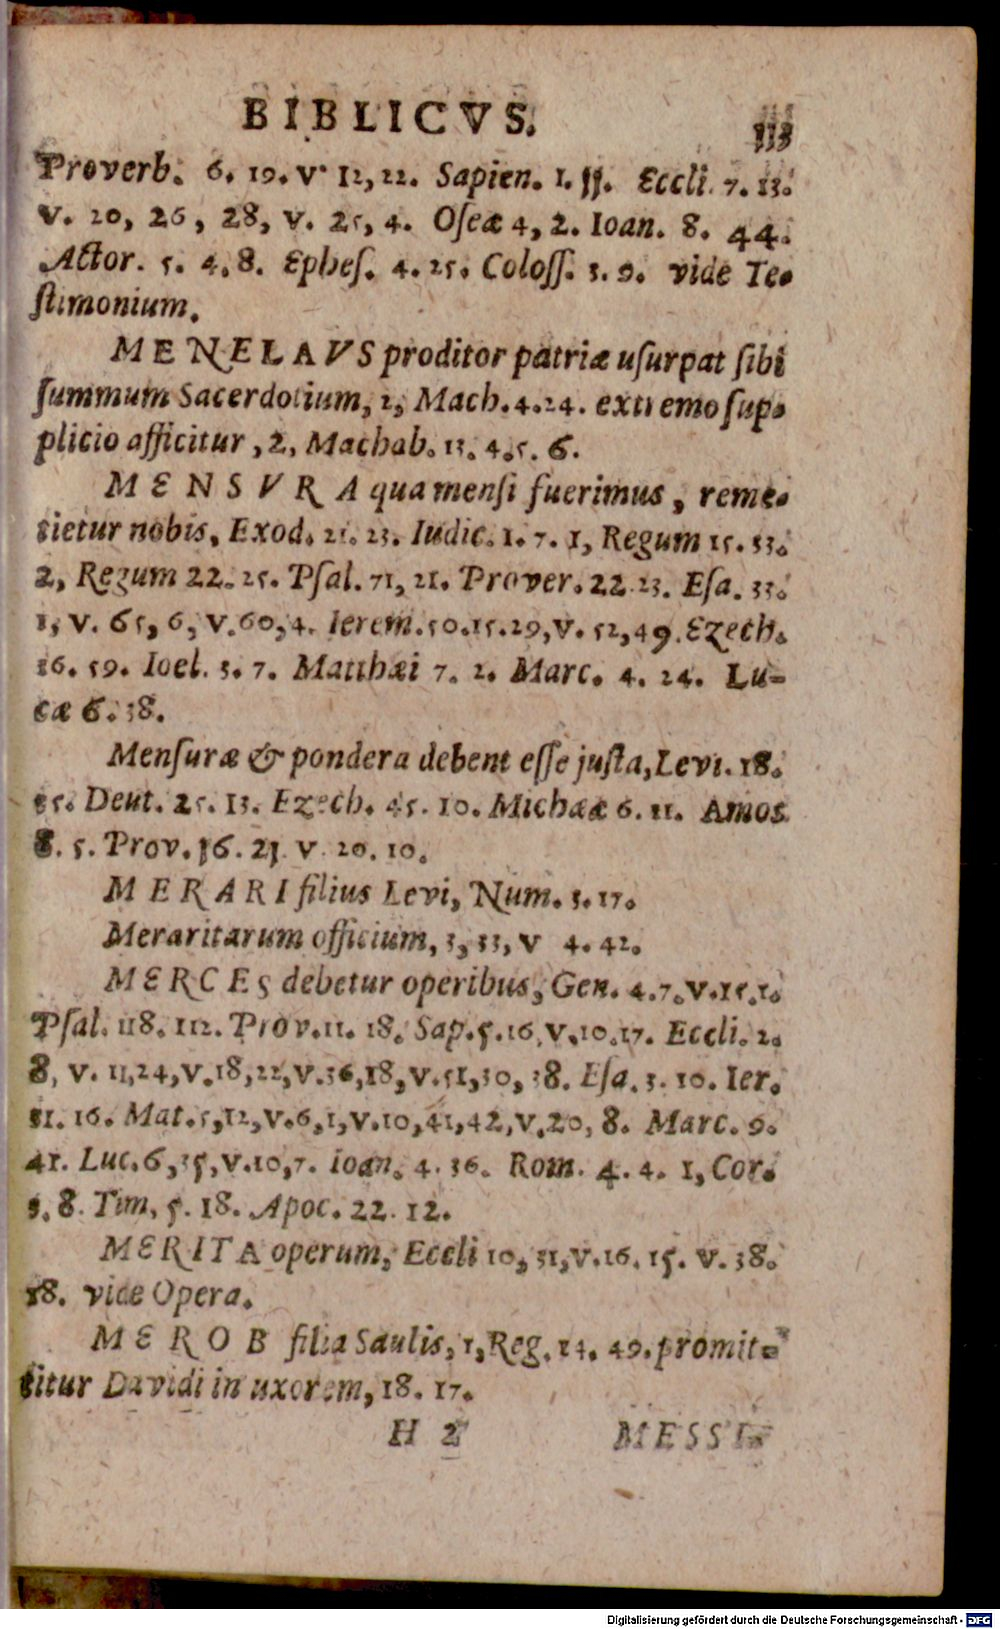 BIBLICVS. 113
Proverb. 6. 19. v. 12, 22. Sapien. 1. 11. Eccli. 7. 13.
v. 20, 26, 28, v. 25, 4. Oseæ 4, 2. Ioan. 8. 44.
Actor. 5. 4. 8. Ephes. 4. 25. Coloss. 3. 9. vide Te-
stimonium.
MENELAVS proditor patriæ usurpat sibi
summum Sacerdotium, 2, Mach. 4. 24. extremo sup-
plicio afficitur, 2, Machab. 13. 4. 5. 6.
MENSVRA qua mensi fuerimus, reme-
tietur nobis, Exod. 21. 23. Iudic. 1. 7. 1, Regum 15. 33.
2, Regum 22. 25. Psal. 71, 21. Prover. 22. 23. Esa. 33.
1, v. 65, 6, v. 60, 4. Ierem. 50. 15. 29, v. 52, 49. Ezech.
16. 59. Ioel. 3. 7. Matthæi 7. 2. Marc. 4. 24. Lu-
cæ 6. 38.
Mensuræ & pondera debent esse justa, Levi. 18.
35. Deut. 25. 13. Ezech. 45. 10. Michææ 6. 11. Amos
8. 5. Prov. 16. 21 v. 20. 10.
MERARI filius Levi, Num. 3. 17.
Meraritarum officium, 3, 33, v 4. 42.
MERCES debetur operibus, Gen. 4. 7. v. 15. 1.
Psal. 118. 112. Prov. 11. 18. Sap. 5. 16, v. 10. 17. Eccli. 2.
8, v. 11, 24, v. 18, 22, v. 36, 18, v. 51, 30, 38. Esa. 3. 10. Ier.
31. 16. Mat. 5, 12, v. 6, 1, v. 10, 41, 42, v. 20, 8. Marc. 9.
41. Luc. 6, 35, v. 10, 7. Ioan. 4. 36. Rom. 4. 4. 1, Cor.
3. 8. Tim, 5. 18. Apoc. 22. 12.
MERITA operum, Eccli 10, 31, v. 16. 15. v. 38.
18. vide Opera.
MEROB filia Saulis, 1, Reg. 14. 49. promit-
titur Davidi in uxorem, 18. 17.
H 2 MESSI-
Digitalisierung gefördert durch die Deutsche Forschungsgemeinschaft - DFG